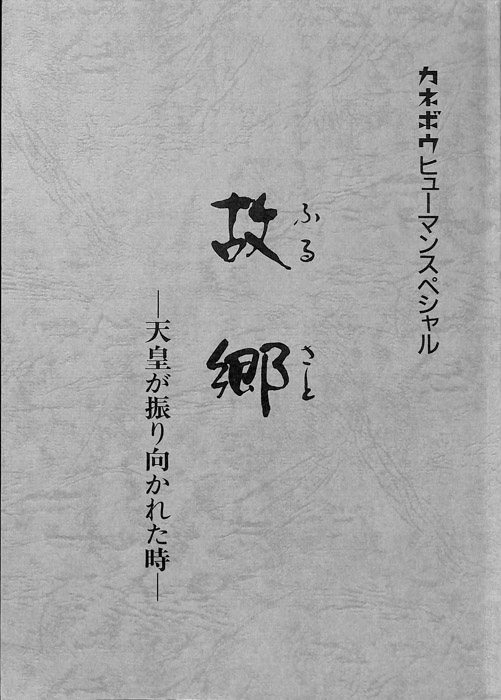 カネボウヒューマンスペシャル
故郷
ふるさと
―天皇が振り向かれた時―